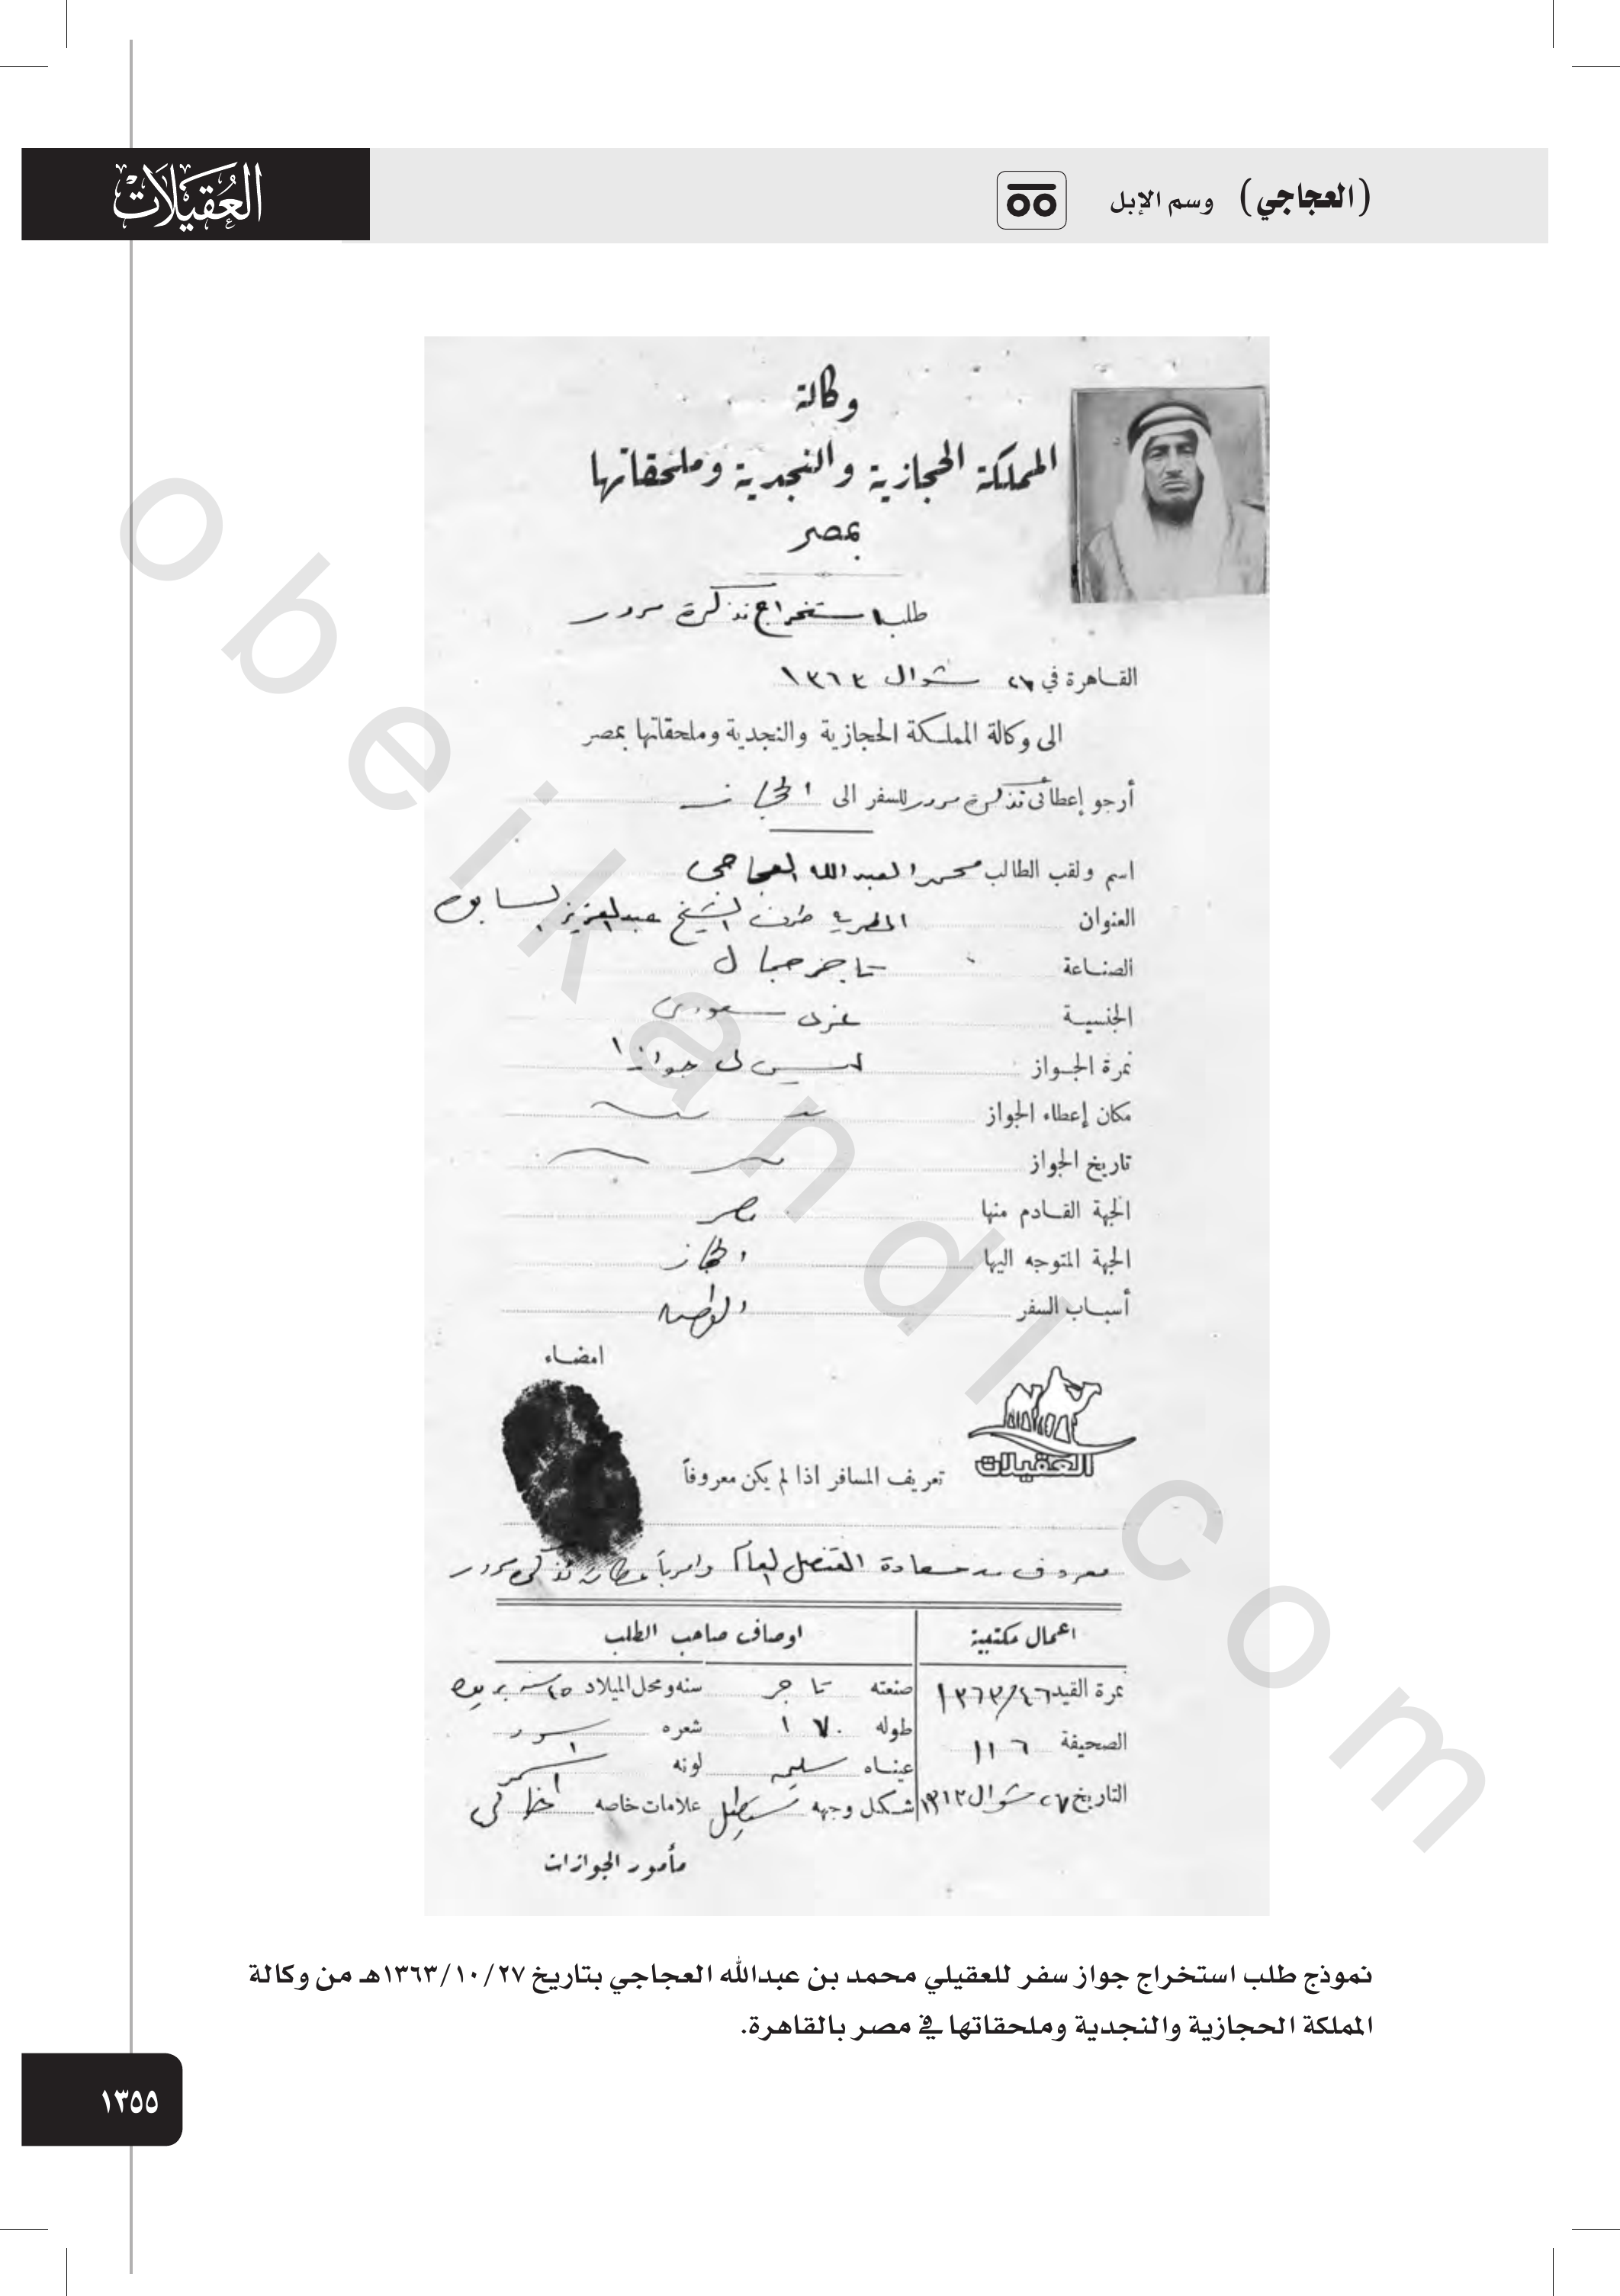 (العجاجي) وسم الإبل
العُقَيلَات
وكالة
المملكة الحجازية والنجدية وملحقاتها
بمصر
طلب استخراج تذكرة مرور
القاهرة في ٢٧ شوال ١٣٦٣
الى وكالة المملكة الحجازية والنجدية وملحقاتها بمصر
أرجو إعطائى تذكرة مرور للسفر الى الحجاز
اسم ولقب الطالب محمد العبدالله العجاجي
العنوان المطرية طرف الشيخ عبدالعزيز السابق
الصناعة تاجر جمال
الجنسية سعودى
نمرة الجواز ليس لى جواز
مكان إعطاء الجواز
تاريخ الجواز
الجهة القادم منها مصر
الجهة المتوجه اليها الحجاز
أسباب السفر
امضاء
العقيلات
تعريف المسافر اذا لم يكن معروفاً
معروف من سعادة القنصل العام وامر باعطائه تذكرة مرور
اعمال مكتبية
نمرة القيد ١٣٦٣/٤٦
الصحيفة ١١٦
التاريخ ٢٧ شوال
اوصاف صاحب الطلب
صنعته تاجر سنه ومحل الميلاد ٤٥ سنه بريده
طوله ١٧٠ شعره اسود
عيناه سليمه لونه اسمر
شكل وجهه مستطيل علامات خاصه
مأمور الجوازات
نموذج طلب استخراج جواز سفر للعقيلي محمد بن عبدالله العجاجي بتاريخ ١٣٦٣/١٠/٢٧هـ من وكالة
المملكة الحجازية والنجدية وملحقاتها في مصر بالقاهرة.
١٣٥٥
obeikandl.com